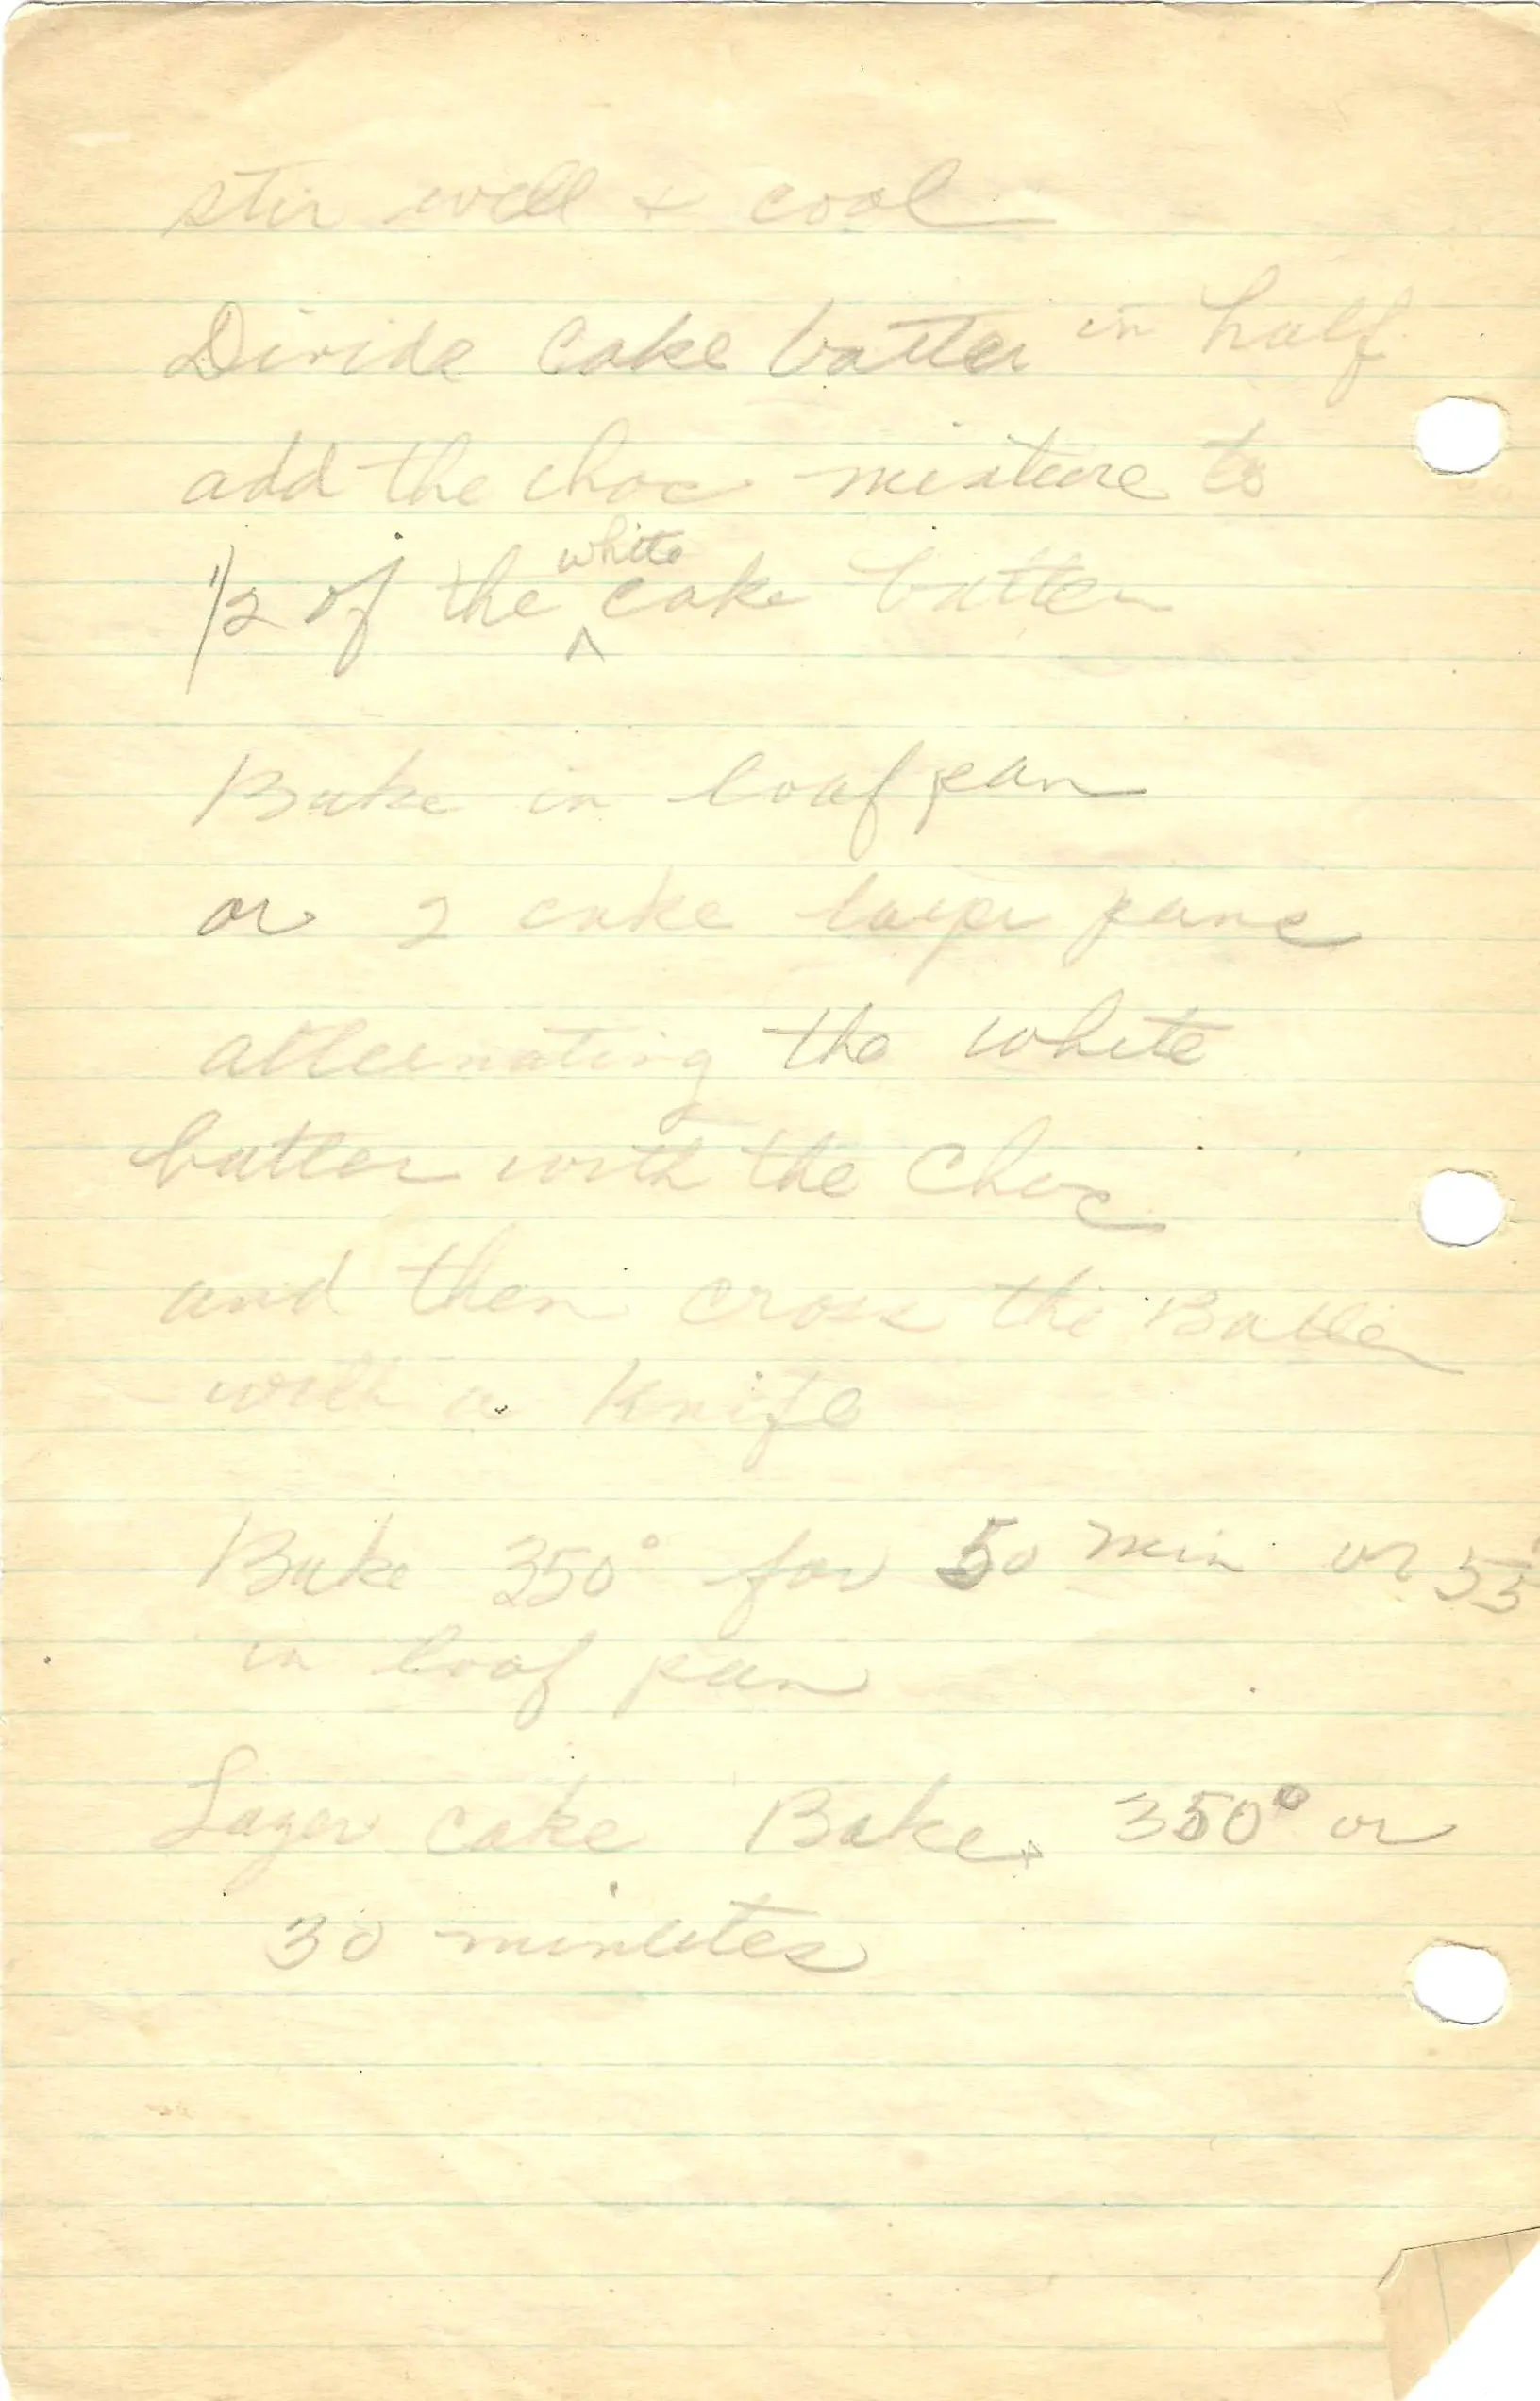 stir well + cool
Divide Cake batter in half
add the choc mixture to
1/2 of the white cake batter
Bake in loaf pan
or 2 cake layer pans
alternating the white
batter with the Choc
and then cross the Batter
with a Knife
Bake 350° for 50 min or 55
in loaf pan
Layer cake Bake 350° or
30 minutes